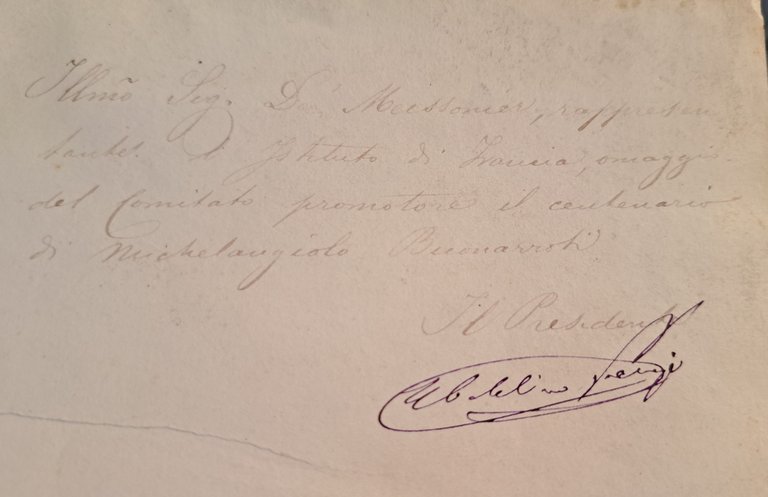 Illmõ Sig. De Meissonier, rappresen
tante l'Istituto di Francia, omaggio
del Comitato promotore il centenario
di Michelangiolo Buonarroti
Il Presidente
Ubaldino Peruzzi